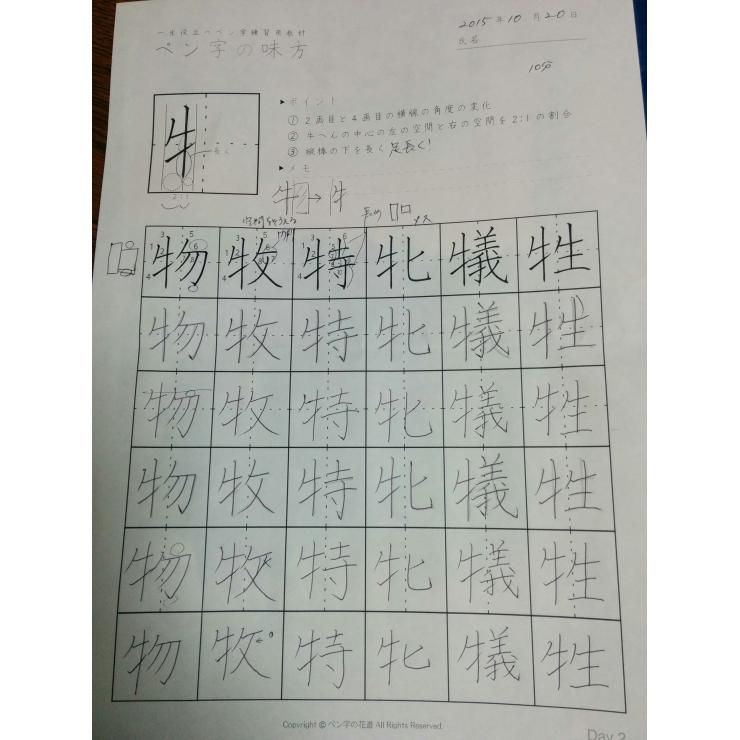 一生役立つペン字練習用教材
ペン字の味方
2015年10月20日
氏名
10分
牛
長く
2:1
▶ポイント
① 2画目と4画目の横線の角度の変化
② 牛へんの中心の左の空間と右の空間を2:1の割合
③ 縦棒の下を長く 足長く!
▶メモ
物→牛
メス
物 牧 特 牝 犠 牲
物 牧 特 牝 犠 牲
物 牧 特 牝 犠 牲
物 牧 特 牝 犠 牲
物 牧 特 牝 犠 牲
物 牧 特 牝 犠 牲
Copyright © ペン字の花道 All Rights Reserved.
Day 2